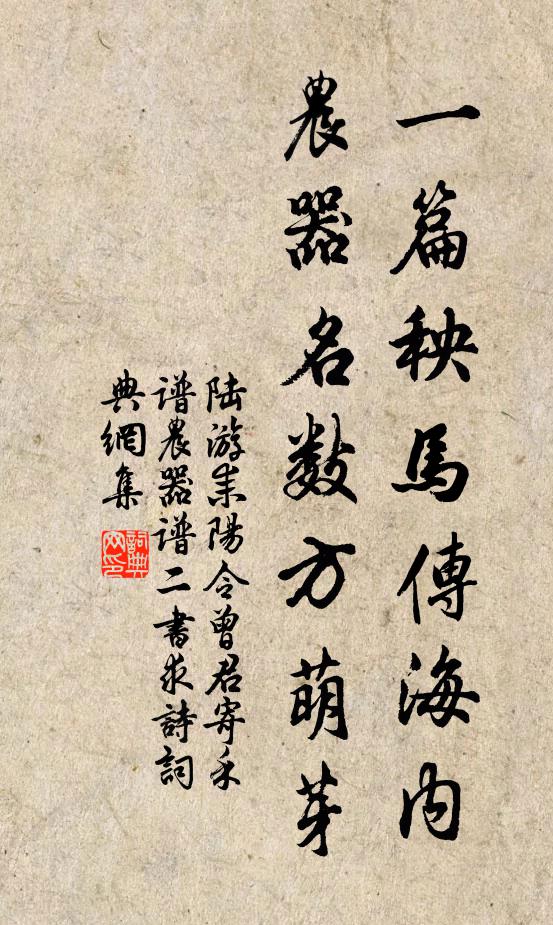 一篇秧馬傳海内
農器名数方萌芽
陆游耒陽令曾君寄禾
谱農器谱二書求詩詞
典網集
詞典网印